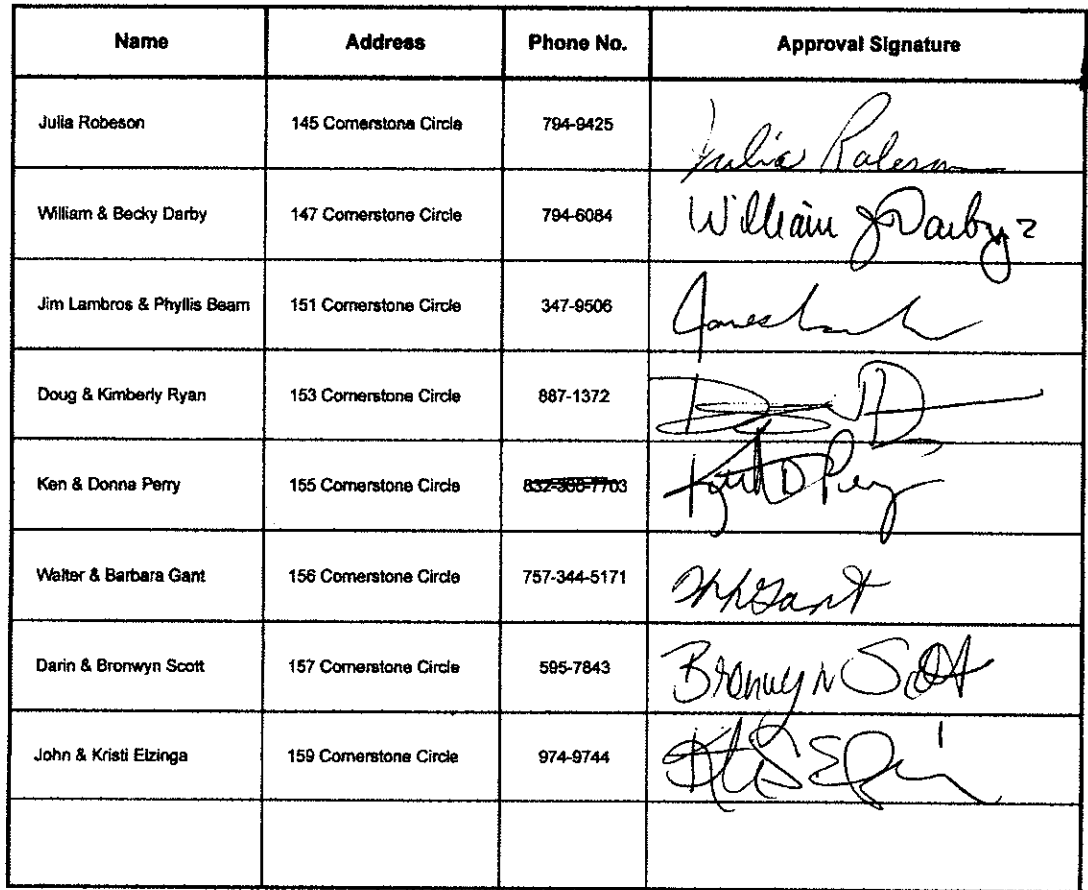 Name Address Phone No. Approval Signature
Julia Robeson 145 Cornerstone Circle 794-9425 Julia Robeson
William & Becky Darby 147 Cornerstone Circle 794-6084 William J Darby
Jim Lambros & Phyllis Beam 151 Cornerstone Circle 347-9506
Doug & Kimberly Ryan 153 Cornerstone Circle 887-1372
Ken & Donna Perry 155 Cornerstone Circle
Walter & Barbara Gant 156 Cornerstone Circle 757-344-5171
Darin & Bronwyn Scott 157 Cornerstone Circle 595-7843 Bronwyn Scott
John & Kristi Elzinga 159 Cornerstone Circle 974-9744